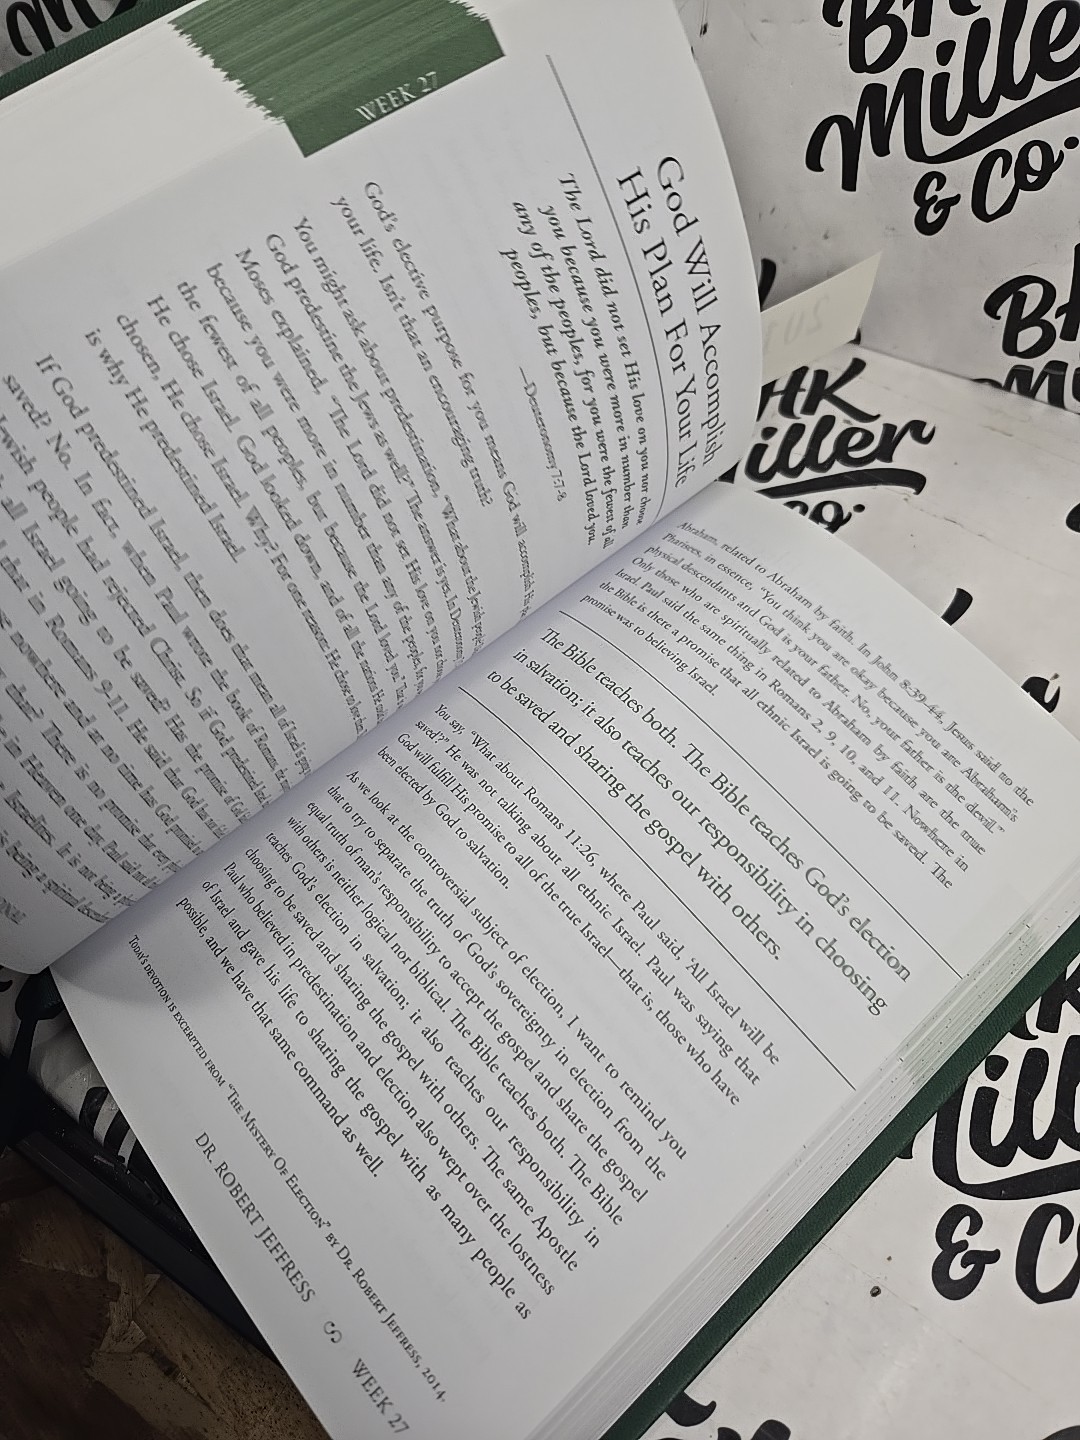 WEEK 27
God Will Accomplish
His Plan For Your Life
The Lord did not set His love on you nor choose
you because you were more in number than
any of the peoples, for you were the fewest of all
peoples, but because the Lord loved you.
—Deuteronomy 7:7-8
God's elective purpose for you means God will accomplish His
your life. Isn't that an encouraging truth?
You might ask about predestination, "What about the Jewish
God predestine the Jews as well?" The answer is yes. In Deuteronomy
Moses explained, "The Lord did not set His love on you
because you were more in number than any of the peoples, for
the fewest of all peoples, but because the Lord loved you."
He chose Israel. God looked down, and of all the nations He
chosen, He chose Israel. Why? For one reason: He chose
is why He predestined Israel.
If God predestined Israel, then does that mean all of Israel is
saved? No. In fact, when Paul wrote the book of Romans,
Jewish people had rejected Christ. So if God predestined
all Israel going to be saved? Has the promise of
that in Romans 9-11. He said that God has
nowhere and at no time has God promised
that? There is no promise that every
in Heaven one day. Paul said
Israelites. It is not being
being a spiritual
Abraham, related to Abraham by faith. In John 8:39-44, Jesus said to the
Pharisees, in essence, "You think you are okay because you are Abraham's
physical descendants and God is your father. No, your father is the devil."
Only those who are spiritually related to Abraham by faith are the true
Israel. Paul said the same thing in Romans 2, 9, 10, and 11. Nowhere in
the Bible is there a promise that all ethnic Israel is going to be saved. The
promise was to believing Israel.
The Bible teaches both. The Bible teaches God's election
in salvation; it also teaches our responsibility in choosing
to be saved and sharing the gospel with others.
You say, "What about Romans 11:26, where Paul said, 'All Israel will be
saved'?" He was not talking about all ethnic Israel. Paul was saying that
God will fulfill His promise to all of the true Israel—that is, those who have
been elected by God to salvation.
As we look at the controversial subject of election, I want to remind you
that to try to separate the truth of God's sovereignty in election from the
equal truth of man's responsibility to accept the gospel and share the gospel
with others is neither logical nor biblical. The Bible teaches both. The Bible
teaches God's election in salvation; it also teaches our responsibility in
choosing to be saved and sharing the gospel with others. The same Apostle
Paul who believed in predestination and election also wept over the lostness
of Israel and gave his life to sharing the gospel with as many people as
possible, and we have that same command as well.
TODAY'S DEVOTION IS EXCERPTED FROM "THE MYSTERY OF ELECTION" BY DR. ROBERT JEFFRESS, 2014.
DR. ROBERT JEFFRESS WEEK 27
Miller
& CO.
BHK
HK
iller
co.
& C